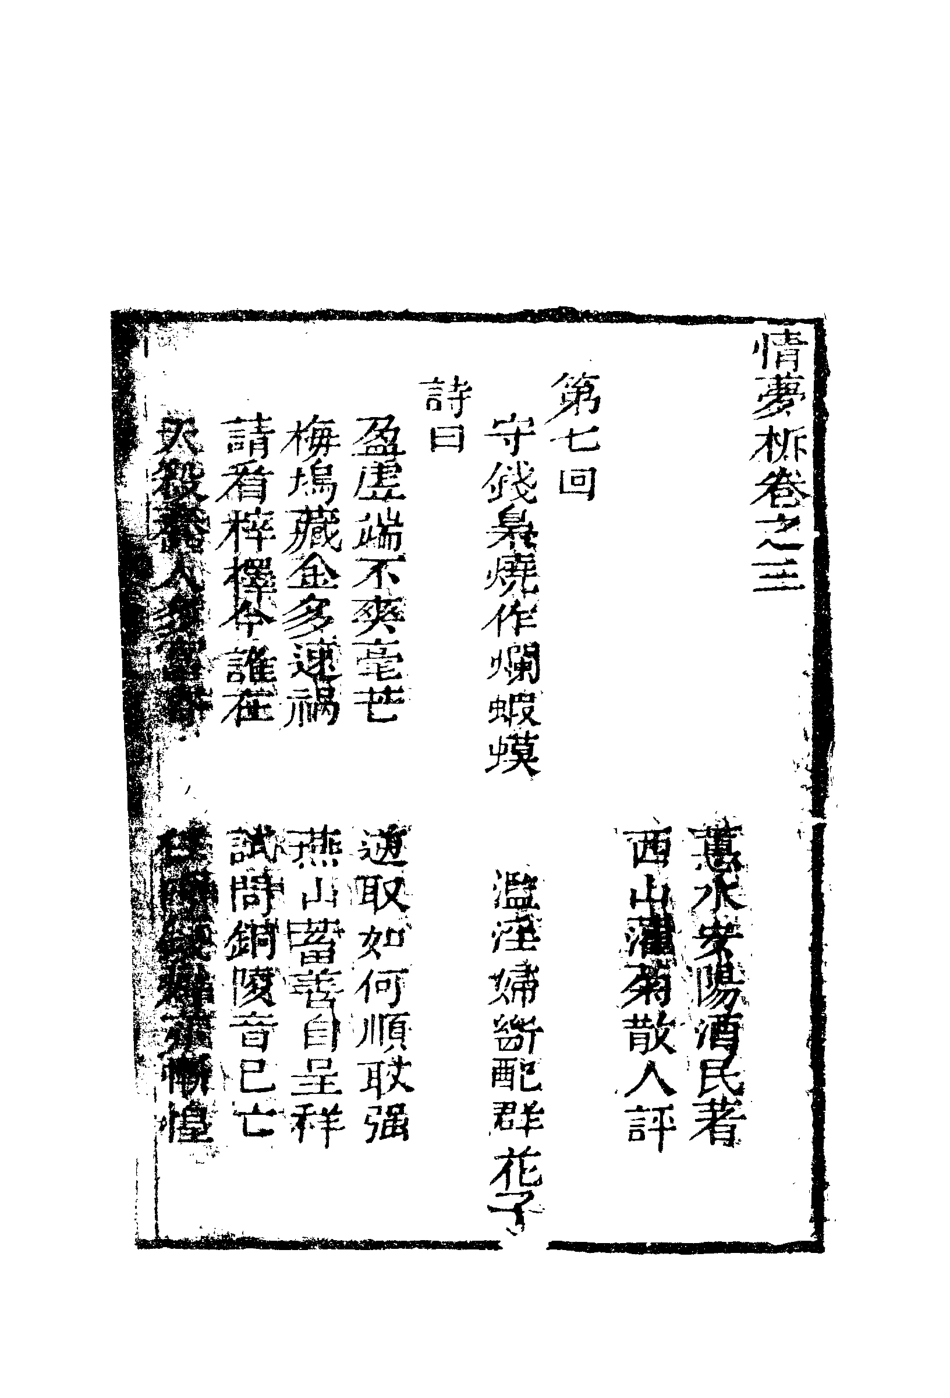 情夢柝卷之三
蕙水安陽酒民著
西山灌菊散人評
第七回
守錢梟燒作爛蝦蟆 濫淫婦斷配群花子
詩曰
盈虛端不爽毫芒 道取如何順取强
梅塢藏金多速禍 燕山蓄善自呈祥
請看梓檡今誰在 試問銅陵音已亡
天殺人多 慚惶